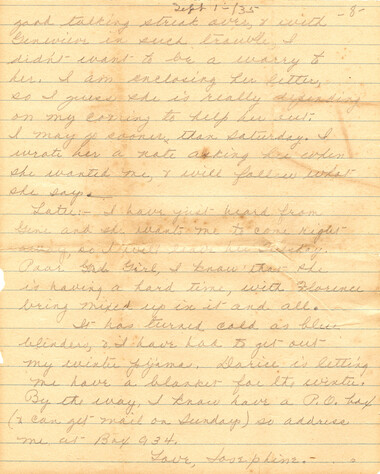 Sept 1-/35 -8-
good talking streak over, & with
Genevieve in such trouble I
didn't want to be a worry to
her. I am enclosing her letter,
so I guess she is really depending
on my coming to help her out.
I may go sooner than Saturday. I
wrote her a note asking her when
she wanted me, & will follow what
she says.
Later:- I have just heard from
Gene and she wants me to come right
away, so I will leave here Tuesday.
Poor Girl, I know that she
is having a hard time, with Florence
being mixed up in it and all.
It has turned cold as blue
blindes, & I have had to get out
my winter pajama. Darice is letting
me have a blanket for the winter.
By the way, I know have a P.O. box
(& can get mail on Sunday) so address
me at Box 934.
Love, Josephine.-